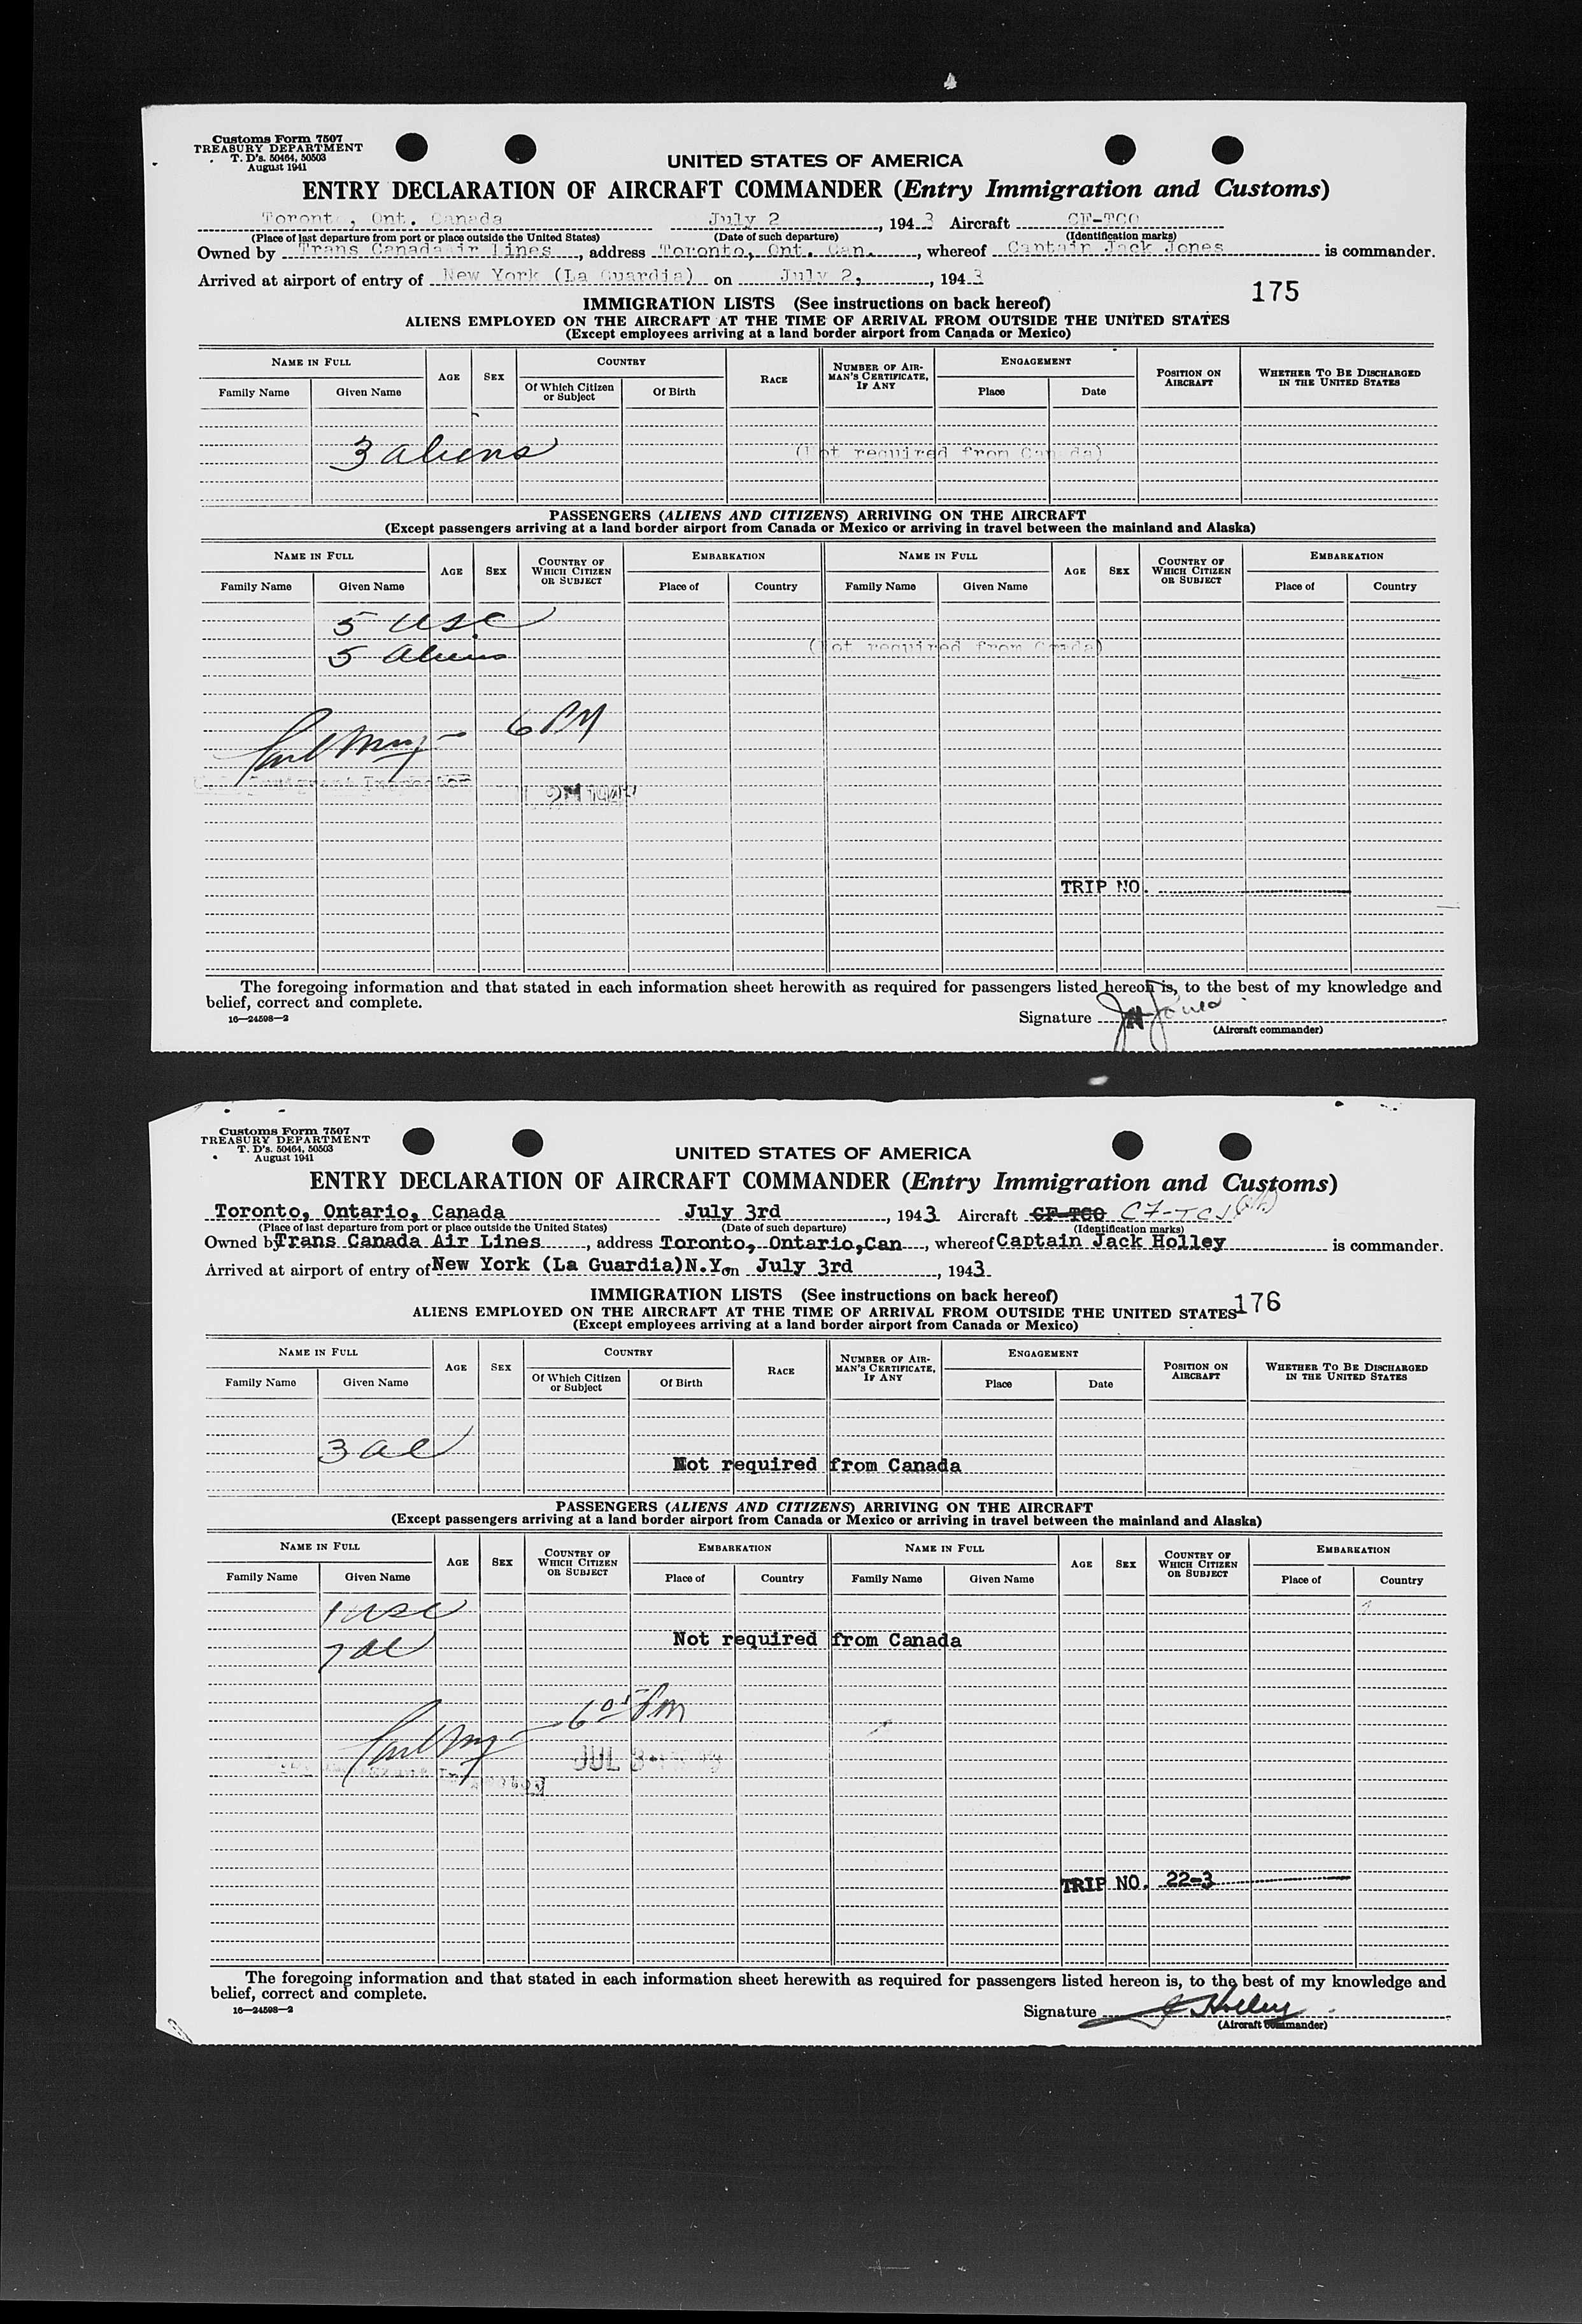 Customs Form 7507
TREASURY DEPARTMENT
T. D's. 50464, 50503
August 1941
UNITED STATES OF AMERICA
ENTRY DECLARATION OF AIRCRAFT COMMANDER (Entry Immigration and Customs)
Toronto, Ont. Canada July 2, 1943 Aircraft CF-TCO
(Place of last departure from port or place outside the United States) (Date of such departure) (Identification marks)
Owned by Trans Canada Air Lines, address Toronto, Ont. Can., whereof Captain Jack Jones is commander.
Arrived at airport of entry of New York (La Guardia) on July 2, 1943
175
IMMIGRATION LISTS (See instructions on back hereof)
ALIENS EMPLOYED ON THE AIRCRAFT AT THE TIME OF ARRIVAL FROM OUTSIDE THE UNITED STATES
(Except employees arriving at a land border airport from Canada or Mexico)
NAME IN FULL AGE SEX COUNTRY RACE NUMBER OF AIRMAN'S CERTIFICATE, IF ANY ENGAGEMENT POSITION ON AIRCRAFT WHETHER TO BE DISCHARGED IN THE UNITED STATES
Family Name Given Name Of Which Citizen or Subject Of Birth Place Date
3 aliens (Not required from Canada)
PASSENGERS (ALIENS AND CITIZENS) ARRIVING ON THE AIRCRAFT
(Except passengers arriving at a land border airport from Canada or Mexico or arriving in travel between the mainland and Alaska)
NAME IN FULL AGE SEX COUNTRY OF WHICH CITIZEN OR SUBJECT EMBARKATION NAME IN FULL AGE SEX COUNTRY OF WHICH CITIZEN OR SUBJECT EMBARKATION
Family Name Given Name Place of Country Family Name Given Name Place of Country
5 USC
5 Aliens (Not required from Canada)
6 PM
Immigrant Inspector
TRIP NO.
The foregoing information and that stated in each information sheet herewith as required for passengers listed hereon is, to the best of my knowledge and
belief, correct and complete.
16—24598—2
Signature Jones
(Aircraft commander)
Customs Form 7507
TREASURY DEPARTMENT
T. D's. 50464, 50503
August 1941
UNITED STATES OF AMERICA
ENTRY DECLARATION OF AIRCRAFT COMMANDER (Entry Immigration and Customs)
Toronto, Ontario, Canada July 3rd, 1943 Aircraft CF-TCO CF-TCJ
(Place of last departure from port or place outside the United States) (Date of such departure) (Identification marks)
Owned by Trans Canada Air Lines, address Toronto, Ontario,Can, whereof Captain Jack Holley is commander.
Arrived at airport of entry of New York (La Guardia)N.Y. on July 3rd, 1943
IMMIGRATION LISTS (See instructions on back hereof)
176
ALIENS EMPLOYED ON THE AIRCRAFT AT THE TIME OF ARRIVAL FROM OUTSIDE THE UNITED STATES
(Except employees arriving at a land border airport from Canada or Mexico)
NAME IN FULL AGE SEX COUNTRY RACE NUMBER OF AIRMAN'S CERTIFICATE, IF ANY ENGAGEMENT POSITION ON AIRCRAFT WHETHER TO BE DISCHARGED IN THE UNITED STATES
Family Name Given Name Of Which Citizen or Subject Of Birth Place Date
3 al
Not required from Canada
PASSENGERS (ALIENS AND CITIZENS) ARRIVING ON THE AIRCRAFT
(Except passengers arriving at a land border airport from Canada or Mexico or arriving in travel between the mainland and Alaska)
NAME IN FULL AGE SEX COUNTRY OF WHICH CITIZEN OR SUBJECT EMBARKATION NAME IN FULL AGE SEX COUNTRY OF WHICH CITIZEN OR SUBJECT EMBARKATION
Family Name Given Name Place of Country Family Name Given Name Place of Country
1 USC
7 al Not required from Canada
6 05 PM
JUL 3
TRIP NO. 22-3
The foregoing information and that stated in each information sheet herewith as required for passengers listed hereon is, to the best of my knowledge and
belief, correct and complete.
16—24598—2
Signature J Holley
(Aircraft commander)